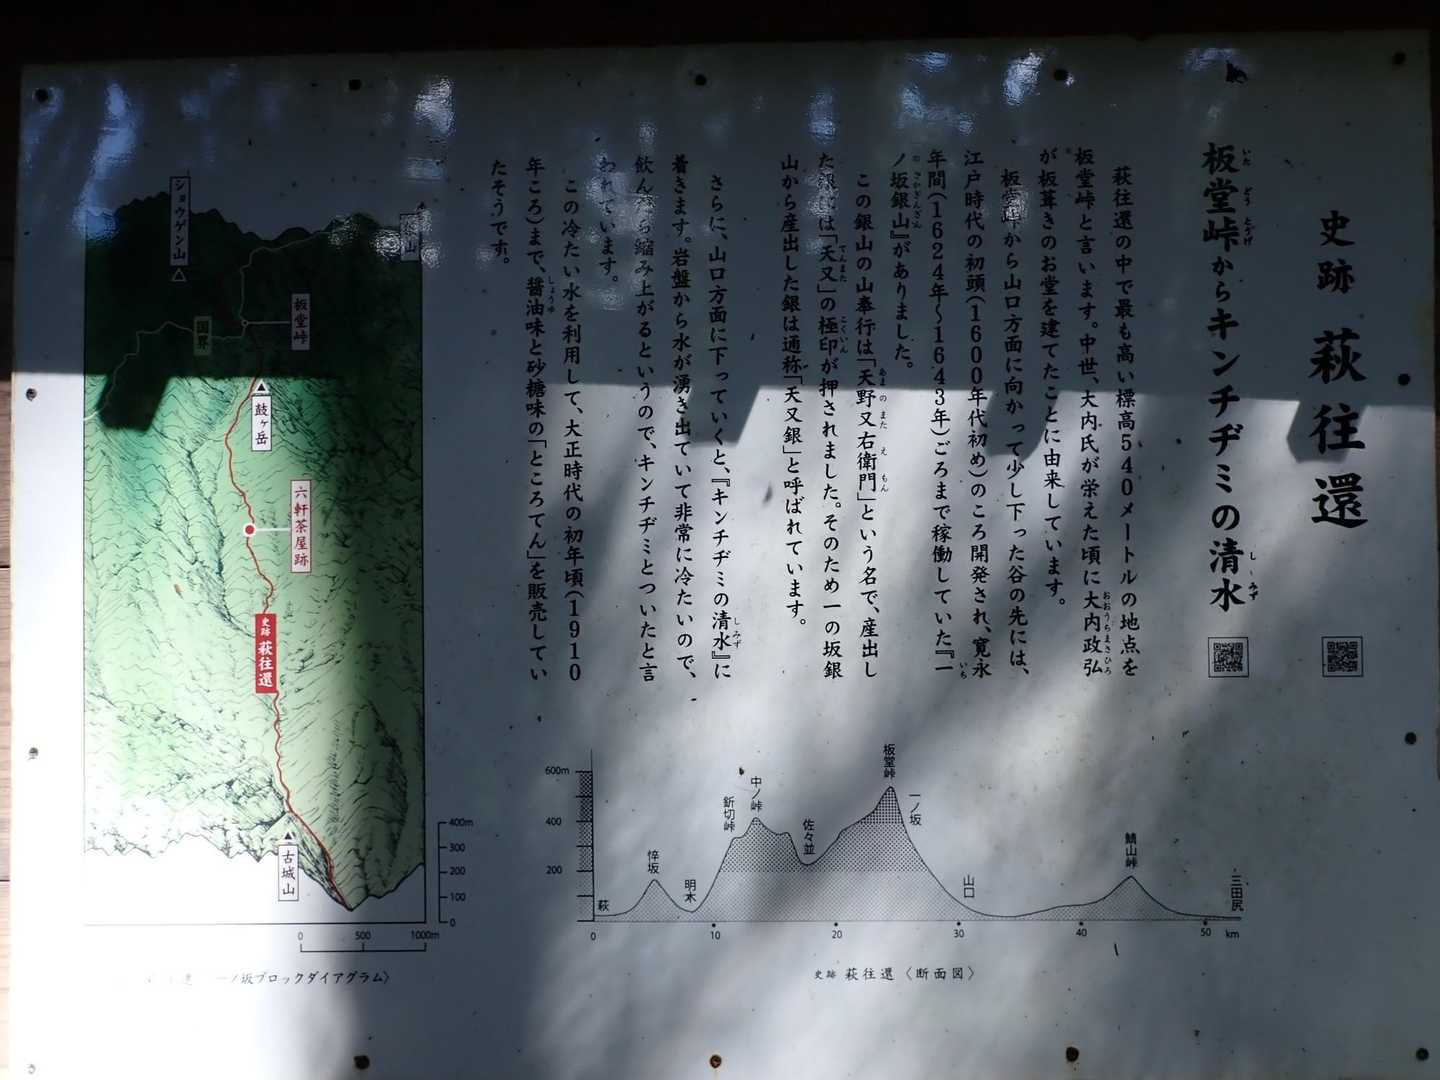 史跡 萩往還
板堂峠からキンチヂミの清水
いた どう とうげ
し みず
萩往還の中で最も高い標高540メートルの地点を
板堂峠と言います。中世、大内氏が栄えた頃に大内政弘
おおうちまさひろ
が板葺きのお堂を建てたことに由来しています。
板堂峠から山口方面に向かって少し下った谷の先には、
江戸時代の初頭(1600年代初め)のころ開発され、寛永
年間(1624年～1643年)ごろまで稼働していた『一
いち
ノ坂銀山』がありました。
の さかぎんざん
この銀山の山奉行は「天野又右衛門」という名で、産出し
あまの また え もん
には「天又」の極印が押されました。そのため一の坂銀
てんまた
ごくいん
山から産出した銀は通称「天又銀」と呼ばれています。
さらに、山口方面に下っていくと、『キンチヂミの清水』に
しみず
着きます。岩盤から水が湧き出ていて非常に冷たいので、
縮み上がるというので、キンチヂミとついたと言
われています。
この冷たい水を利用して、大正時代の初年頃(1910
年ころ)まで、醤油味と砂糖味の「ところてん」を販売してい
しょうゆ
たそうです。
ショウゲン山
板堂峠
国界
鼓ヶ岳
六軒茶屋跡
史跡 萩往還
古城山
400m
300
200
100
0
0 500 1000m
一ノ坂ブロックダイアグラム〉
600m
400
200
萩
悴坂
明木
釿切峠
中ノ峠
佐々並
板堂峠
一ノ坂
山口
鯖山峠
三田尻
0 10 20 30 40 50 km
史跡 萩往還〈断面図〉